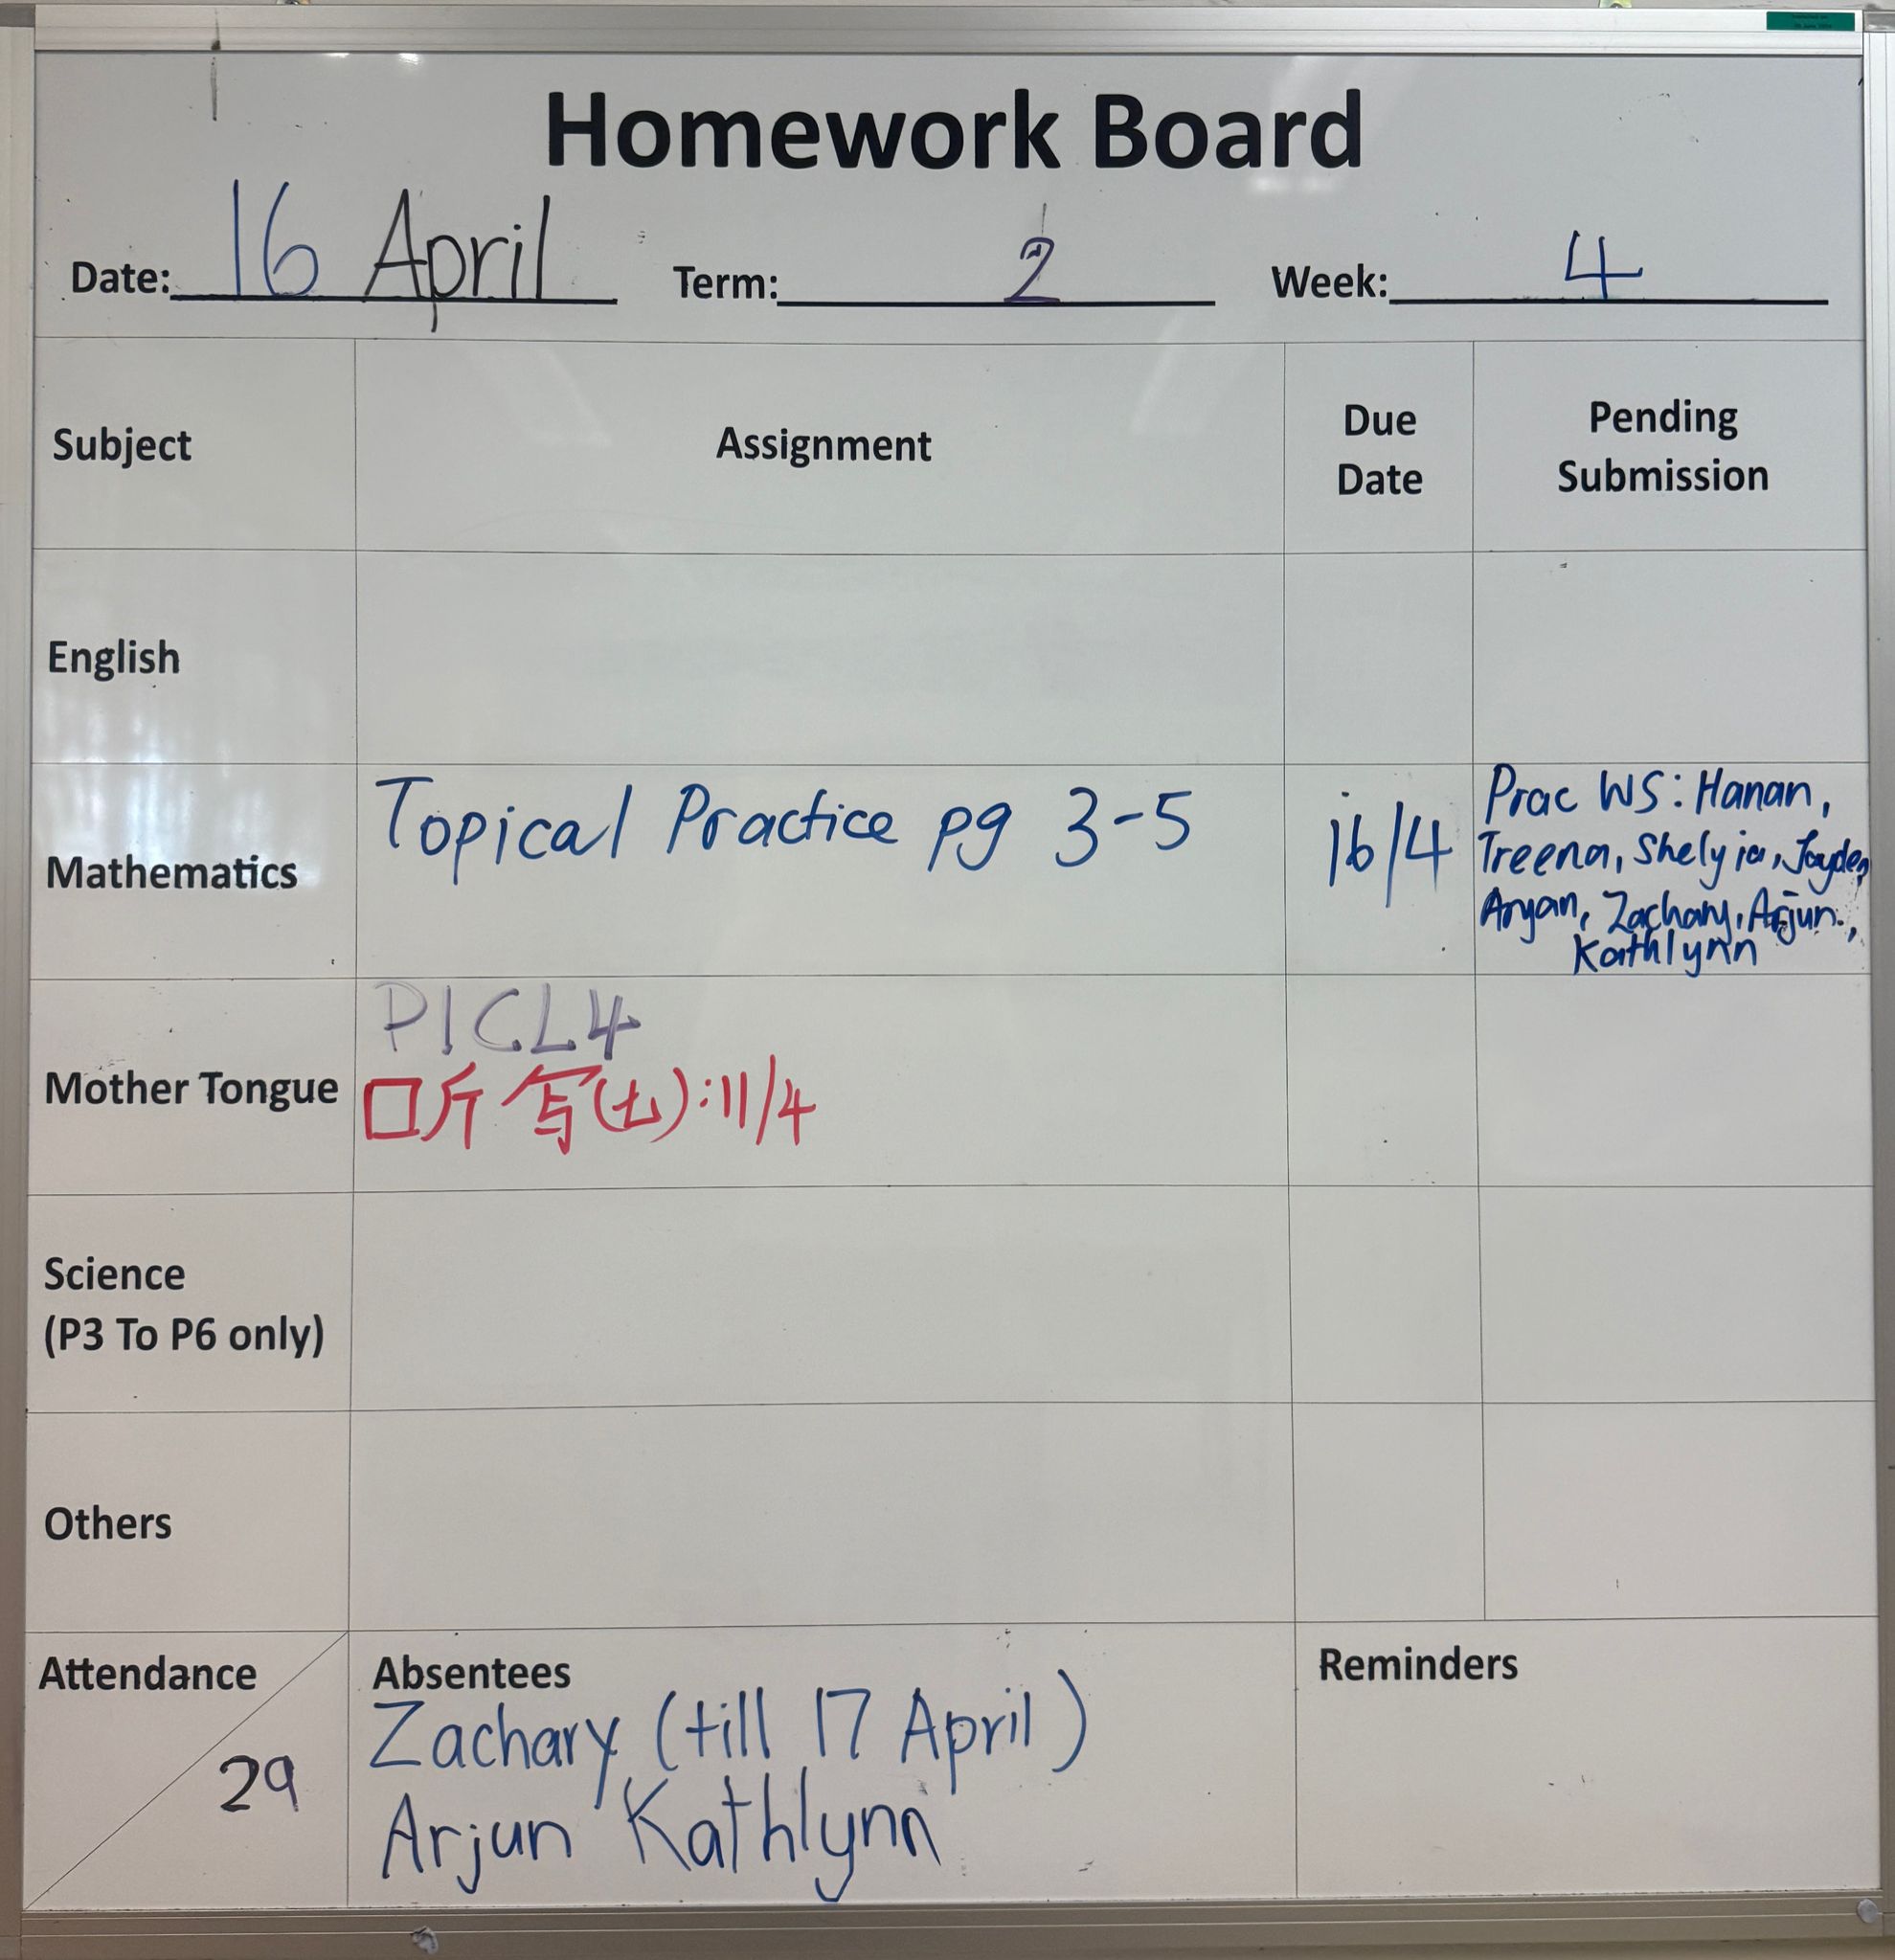 Homework Board
Date: 16 April Term: 2 Week: 4
Subject Assignment Due Date Pending Submission
English
Mathematics Topical Practice pg 3-5 16/4 Prac WS: Hanan,
Treena, Shelyia, Jayden,
Aryan, Zachary, Arjun,
Kathlynn
Mother Tongue P1CL4
听写(七):11/4
Science
(P3 To P6 only)
Others
Attendance 29
Absentees
Zachary (till 17 April)
Arjun Kathlynn
Reminders